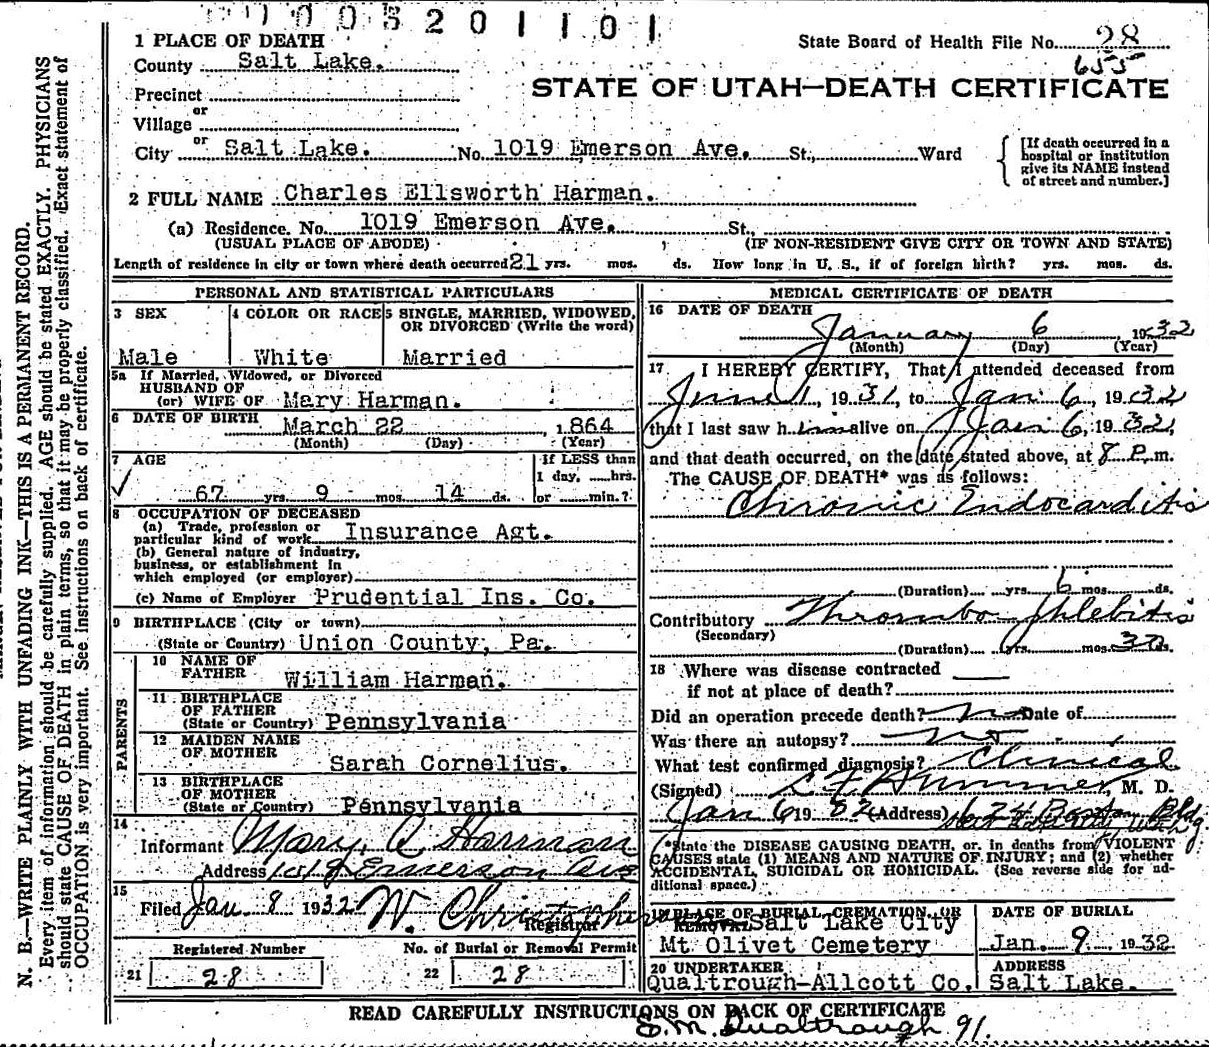 0 0 3 2 0 1 1 0 1
1 PLACE OF DEATH
State Board of Health File No. 28
655
County Salt Lake.
STATE OF UTAH—DEATH CERTIFICATE
Precinct
or
Village
or
City Salt Lake. No. 1019 Emerson Ave. St., Ward
[If death occurred in a hospital or institution give its NAME instead of street and number.]
2 FULL NAME Charles Ellsworth Harman.
(a) Residence. No. 1019 Emerson Ave. St.,
(USUAL PLACE OF ABODE) (IF NON-RESIDENT GIVE CITY OR TOWN AND STATE)
Length of residence in city or town where death occurred 21 yrs. mos. ds. How long in U. S., if of foreign birth? yrs. mos. ds.
PERSONAL AND STATISTICAL PARTICULARS
3 SEX
Male
4 COLOR OR RACE
White
5 SINGLE, MARRIED, WIDOWED, OR DIVORCED (Write the word)
Married
5a If Married, Widowed, or Divorced
HUSBAND OF
(or) WIFE OF Mary Harman.
6 DATE OF BIRTH March 22, 1864
(Month) (Day) (Year)
7 AGE
67 yrs. 9 mos. 14 ds.
If LESS than
1 day, hrs.
or min.?
8 OCCUPATION OF DECEASED
(a) Trade, profession or
particular kind of work Insurance Agt.
(b) General nature of industry,
business, or establishment in
which employed (or employer)
(c) Name of Employer Prudential Ins. Co.
9 BIRTHPLACE (City or town)
(State or Country) Union County, Pa.
PARENTS
10 NAME OF
FATHER William Harman.
11 BIRTHPLACE
OF FATHER
(State or Country) Pennsylvania
12 MAIDEN NAME
OF MOTHER
Sarah Cornelius.
13 BIRTHPLACE
OF MOTHER
(State or Country) Pennsylvania
14
Informant Mary A Harman
Address 1019 Emerson Ave
15
Filed Jan 8 1932 W. Christopherson
Registrar
Registered Number
21 28
No. of Burial or Removal Permit
22 28
MEDICAL CERTIFICATE OF DEATH
16 DATE OF DEATH
January 6 1932
(Month) (Day) (Year)
17 I HEREBY CERTIFY, That I attended deceased from
June 1, 1931, to Jan 6, 1932
that I last saw him alive on Jan 6, 1932,
and that death occurred, on the date stated above, at 8 P.m.
The CAUSE OF DEATH* was as follows:
Chronic Endocarditis
(Duration) yrs. 6 mos. ds.
Contributory Thrombo-phlebitis
(Secondary)
(Duration) yrs. mos. ds.
18 Where was disease contracted
if not at place of death?
Did an operation precede death? no Date of
Was there an autopsy? no
What test confirmed diagnosis? Clinical
(Signed) M. D.
Jan 6 1932 (Address) 624 Boston Bldg
*State the DISEASE CAUSING DEATH, or in deaths from VIOLENT
CAUSES state (1) MEANS AND NATURE OF INJURY; and (2) whether
ACCIDENTAL, SUICIDAL OR HOMICIDAL. (See reverse side for ad-
ditional space.)
19 PLACE OF BURIAL, CREMATION, OR
REMOVAL Salt Lake City
Mt Olivet Cemetery
DATE OF BURIAL
Jan. 9 1932
20 UNDERTAKER
Qualtrough-Allcott Co.
ADDRESS
Salt Lake.
READ CAREFULLY INSTRUCTIONS ON BACK OF CERTIFICATE
E.M. Qualtrough 91.
N. B.—WRITE PLAINLY WITH UNFADING INK—THIS IS A PERMANENT RECORD.
Every item of information should be carefully supplied. AGE should be stated EXACTLY. PHYSICIANS
should state CAUSE OF DEATH in plain terms, so that it may be properly classified. Exact statement of
OCCUPATION is very important. See instructions on back of certificate.